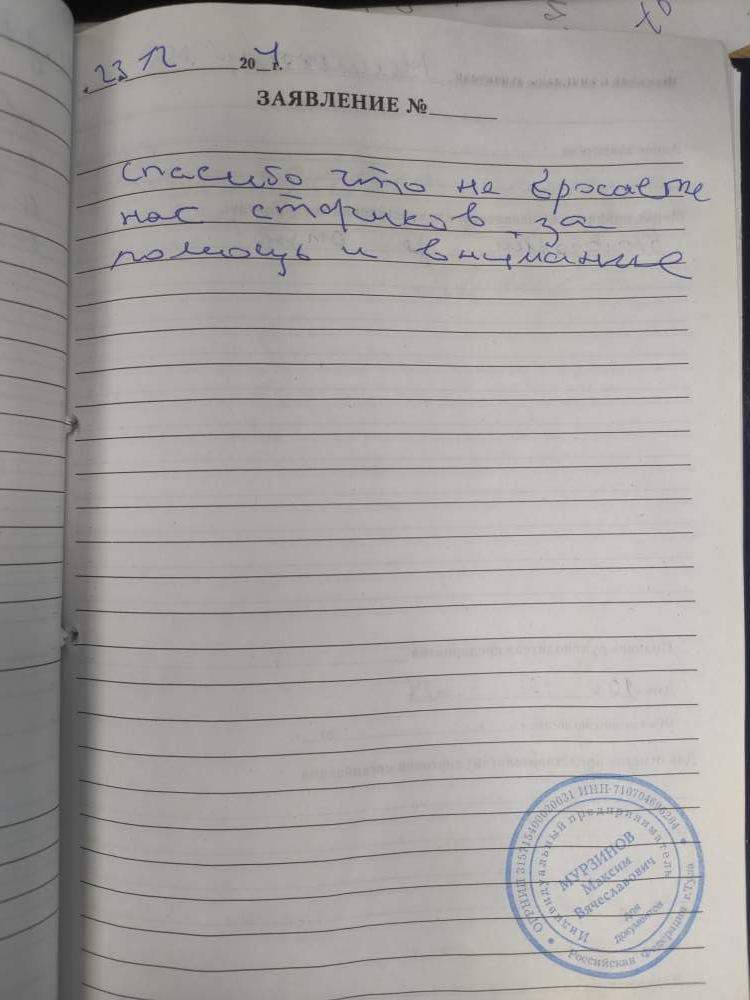 23 12 20 г.
ЗАЯВЛЕНИЕ №
спасибо что не бросаете
нас стариков за
помощь и внимание
ОГРНИП 315715400020031 ИНН 710704696284
Индивидуальный предприниматель
МУРЗИНОВ
Максим
Вячеславович
Для
документов
Российская Федерация г.Тула